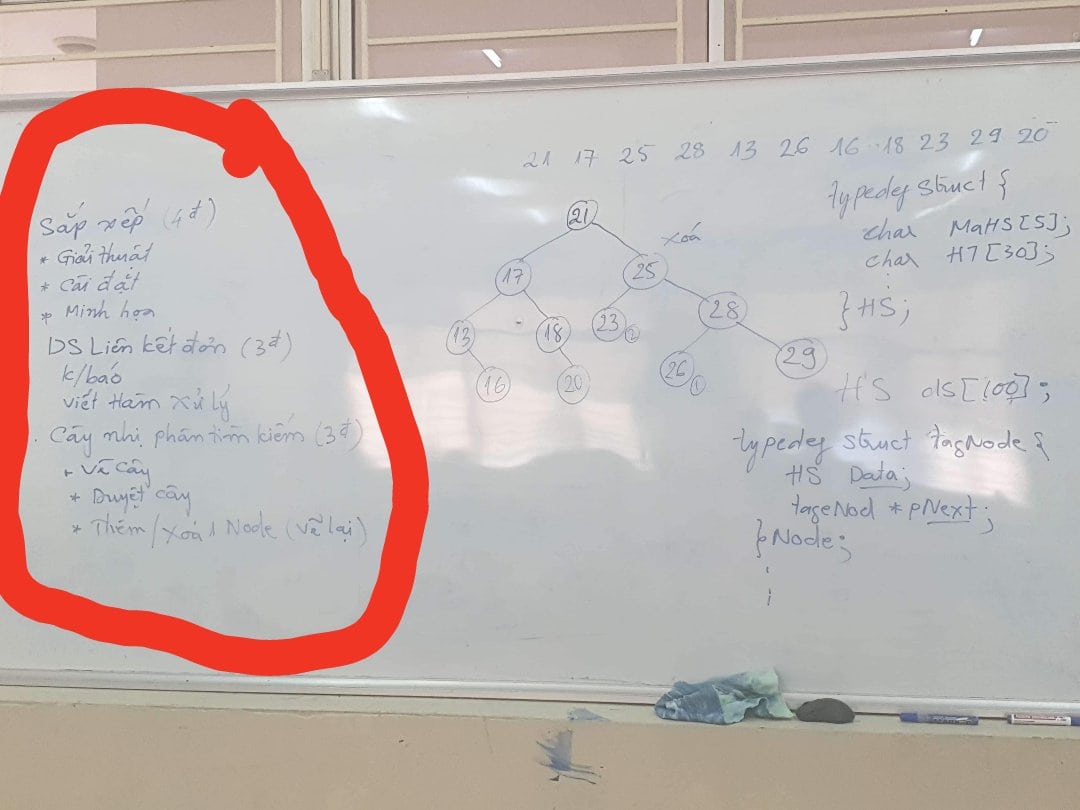 Sắp xếp (4đ)
* Giải thuật
* Cài đặt
* Minh họa
DS Liên kết đơn (3đ)
k/báo
Viết Hàm xử lý
. Cây nhị phân tìm kiếm (3đ)
+ Vẽ cây
* Duyệt cây
* Thêm/Xoá 1 Node (Vẽ lại)
21 17 25 28 13 26 16 18 23 29 20
21
xoá
17 25
13 18 23 2 28
16 20 26 1 29
typedef struct {
char MaHS[5];
char HT[30];
⋮
} HS;
HS ds[100];
typedef struct tagNode {
HS Data;
tageNod *pNext;
} Node;
⋮